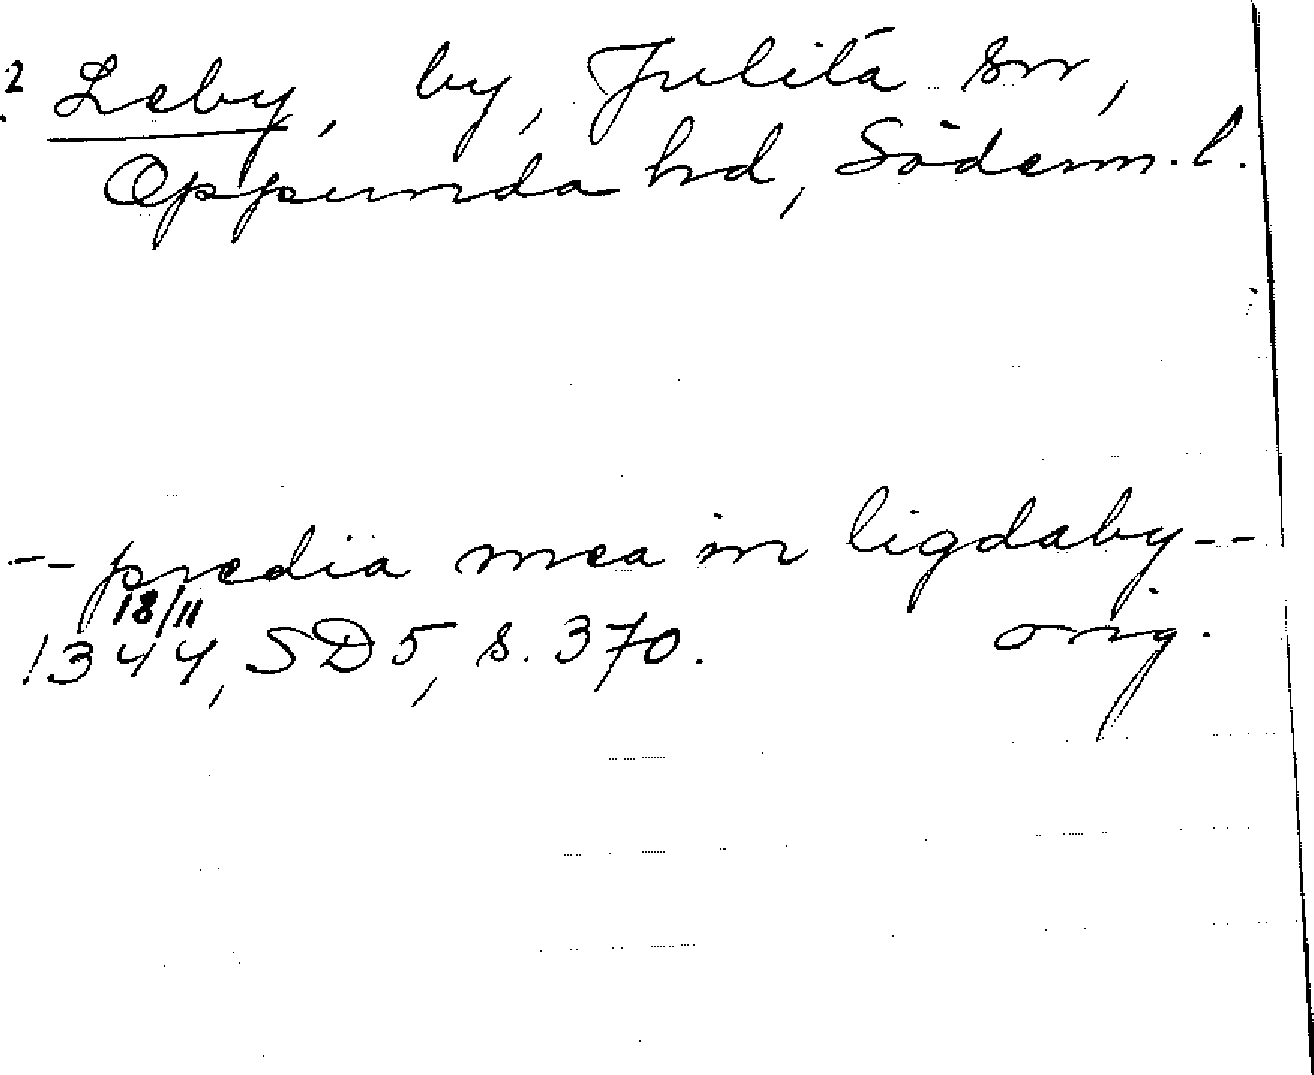 2 Leby, by, Julita sn,
Oppunda hd, Söderm. l.
-- predia mea in ligdaby --
18/11
1344, SD 5, s. 370. orig.